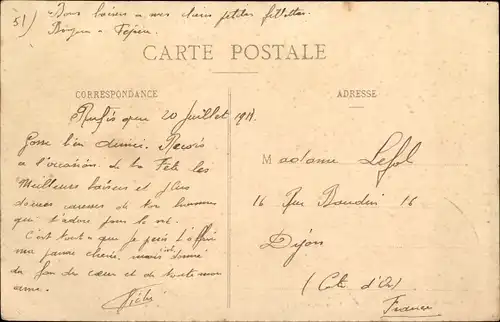 51) Bons baisers a nos chères petites fillettes.
CARTE POSTALE
CORRESPONDANCE
ADRESSE
Rufisque 20 Juillet 191
Reçois
a l'occasion de la Fête les
Meilleurs baisers et plus
douces caresses de ton homme
qui t'adore pour la vie.
C'est tout ce que je peis t'offrir
ma chérie, mais donné
du fon du cœur et de toute mon
ame.
Madame Lefol
16 Rue Baudin 16
Dijon
(Cote d'Or)
France